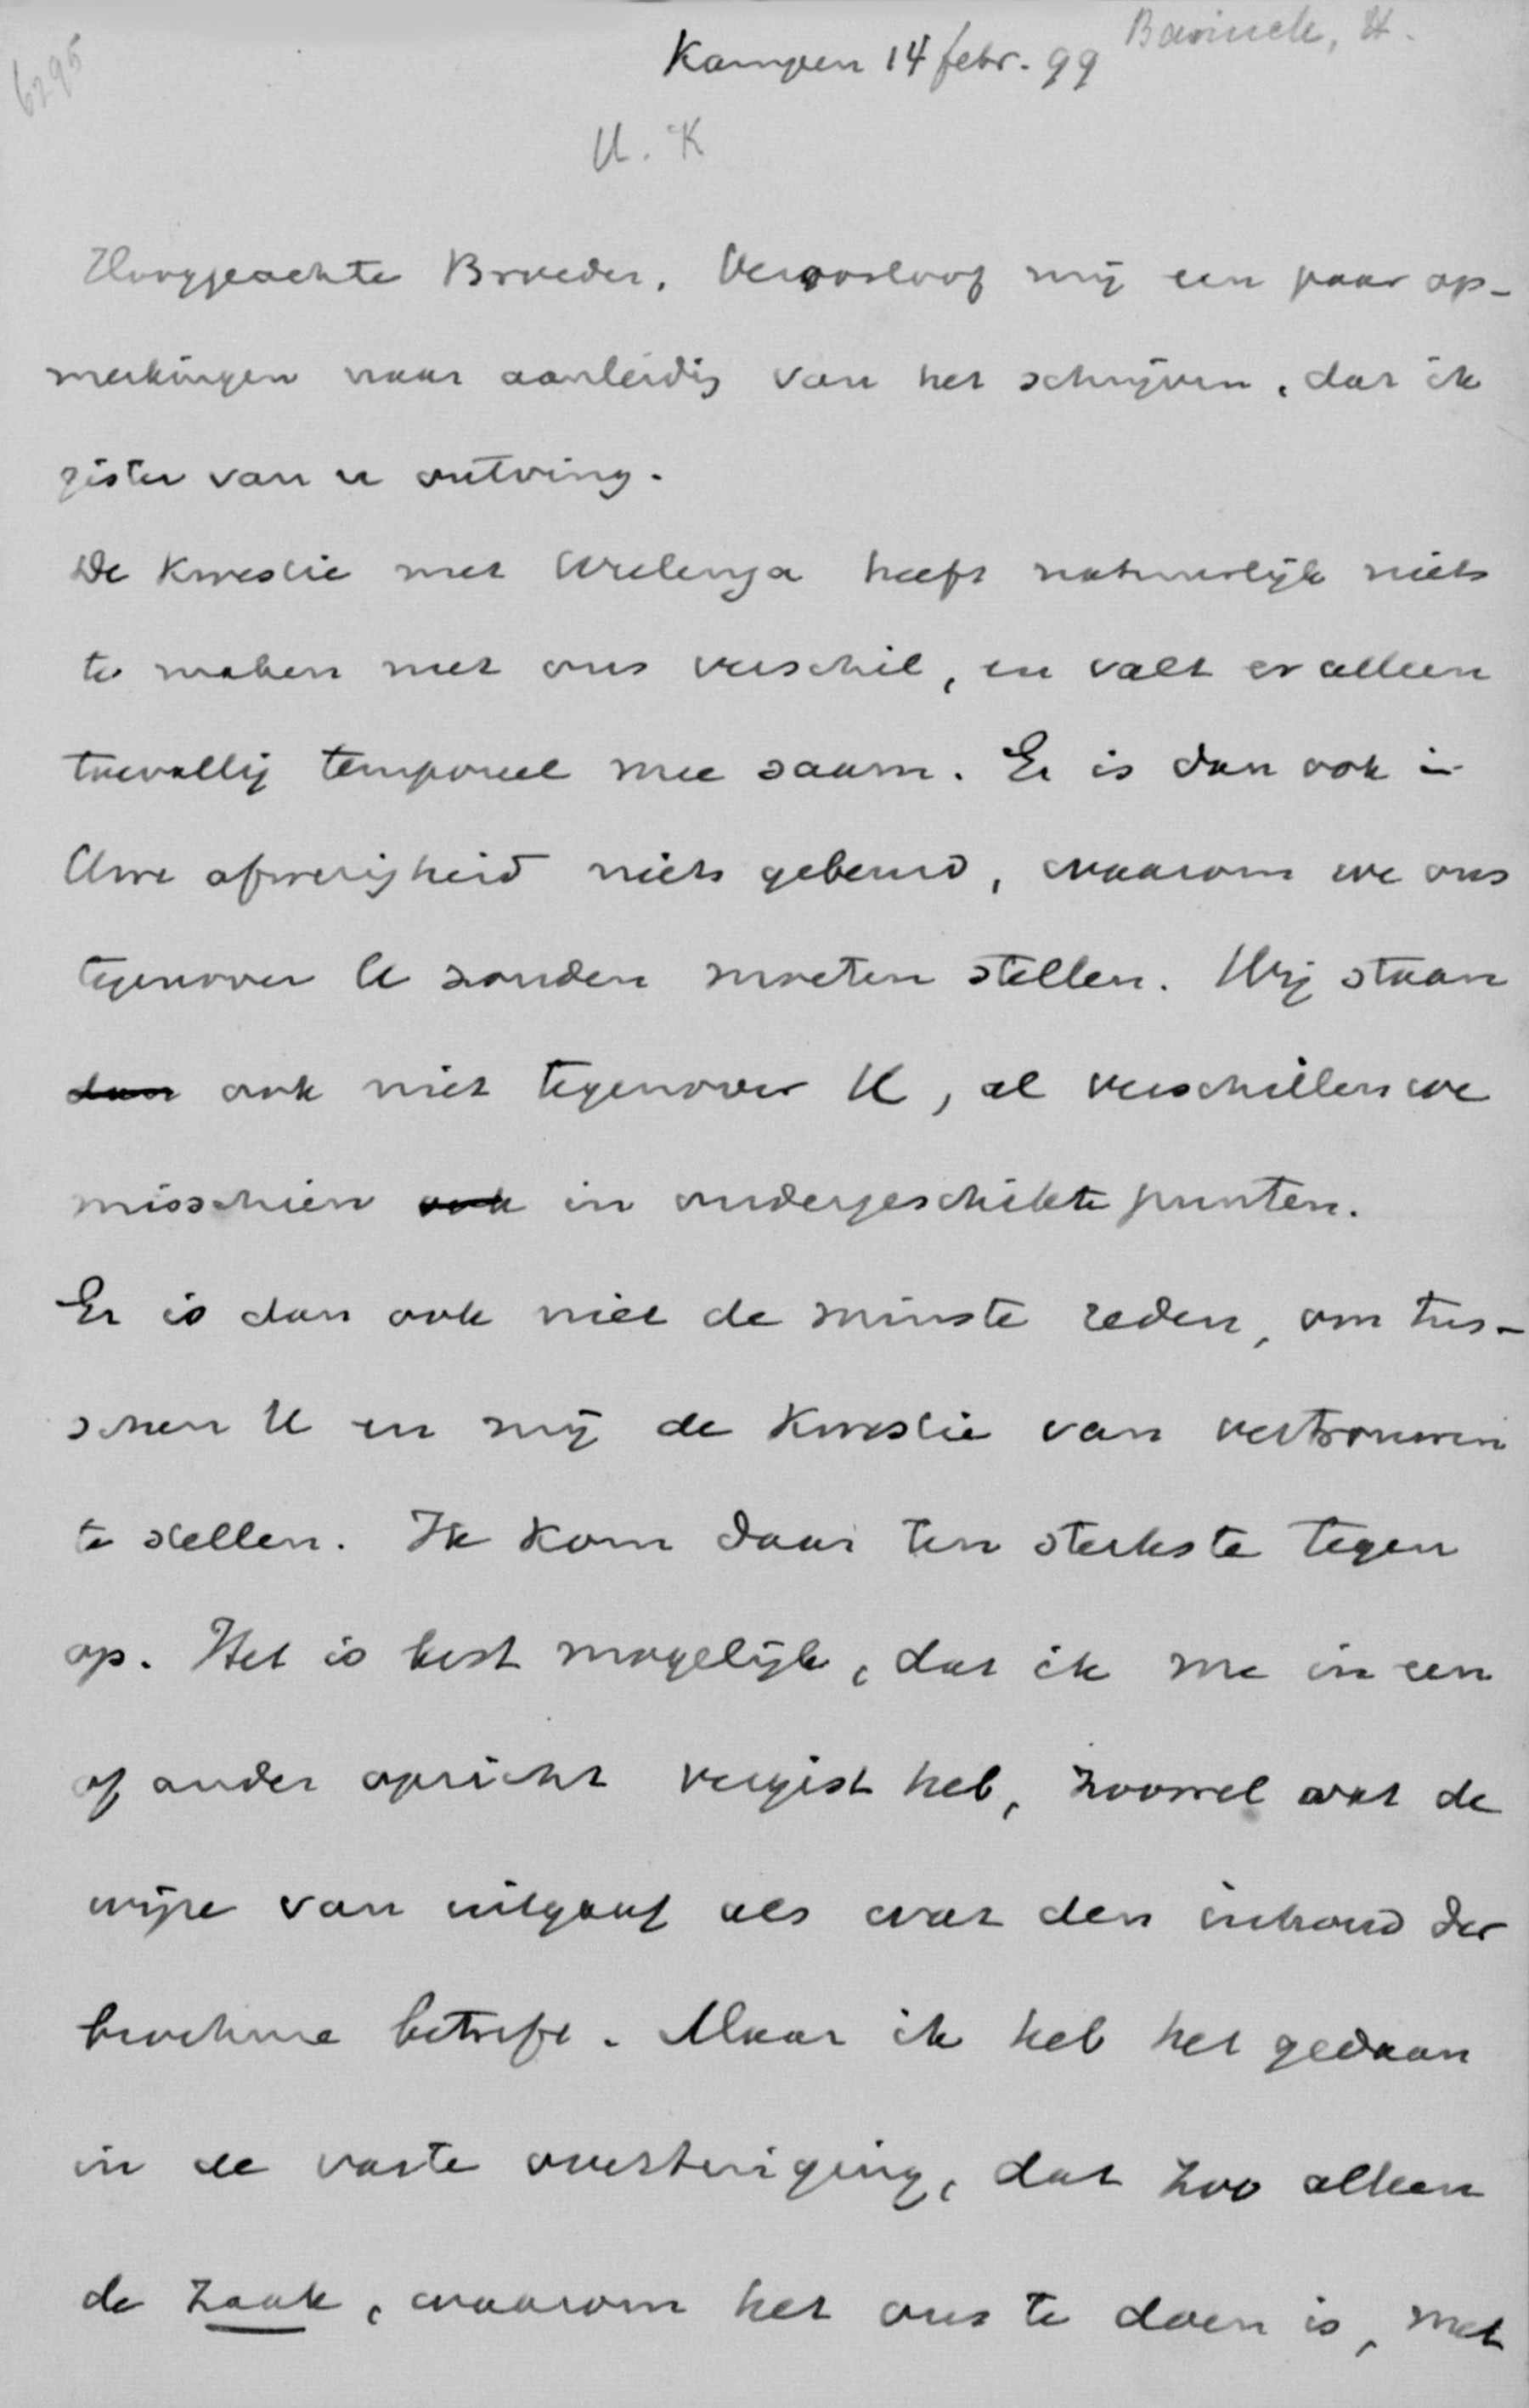 6295
Bavinck, H.
Kampen 14 febr. 99
U. K
Hooggeachte Broeder, Veroorloof mij een paar op-
merkingen naar aanleidig van het schrijven, dat ik
gister van u ontving.
De kwestie met Wielenga heeft natuurlijk niets
te maken met ons verschil, en valt er alleen
toevallig temporeel mee saam. Er is dan ook in
Uwe afwezigheid niets gebeurd, waarom we ons
tegenover U zouden moeten stellen. Wij staan
dan ook niet tegenover U, al verschillen we
misschien ook in ondergeschikte punten.
Er is dan ook niet de minste reden, om tus-
schen U en mij de kwestie van vertrouwen
te stellen. Ik kom daar ten sterkste tegen
op. Het is best mogelijk, dat ik me in een
of ander opzicht vergist heb, zoowel wat de
wijze van uitgaaf als wat den inhoud der
brochure betreft. Maar ik heb het gedaan
in de vaste overtuiging, dat zoo alleen
de zaak, waarom het ons te doen is, met